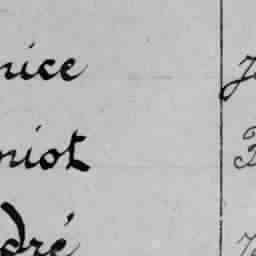 nice
niot
dré